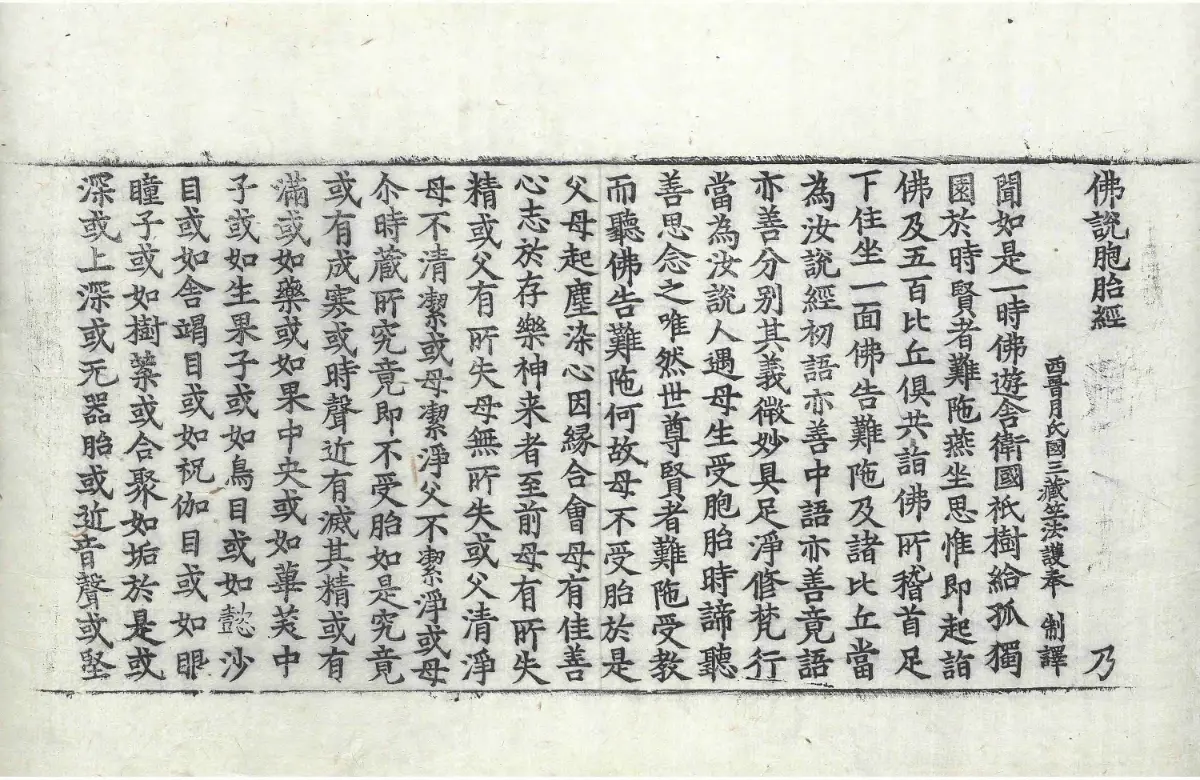 佛說胞胎經 乃
西晉月氏國三藏竺法護奉 制譯
聞如是一時佛遊舍衛國祇樹給孤獨
園於時賢者難陁燕坐思惟即起詣
佛及五百比丘俱共詣佛所稽首足
下住坐一面佛告難陁及諸比丘當
為汝說經初語亦善中語亦善竟語
亦善分別其義微妙具足淨修梵行
當為汝說人遇母生受胞胎時諦聽
善思念之唯然世尊賢者難陁受教
而聽佛告難陁何故母不受胎於是
父母起塵染心因緣合會母有佳善
心志於存樂神来者至前母有所失
精或父有所失母無所失或父清淨
母不清潔或母潔淨父不潔淨或母
尒時藏所究竟即不受胎如是究竟
或有成寒或時聲近有滅其精或有
滿或如藥或如果中央或如蓽茇中
子或如生果子或如鳥目或如懿沙
目或如舍竭目或如祝伽目或如眼
瞳子或如樹葉或合聚如垢於是或
深或上深或无器胎或近音聲或堅